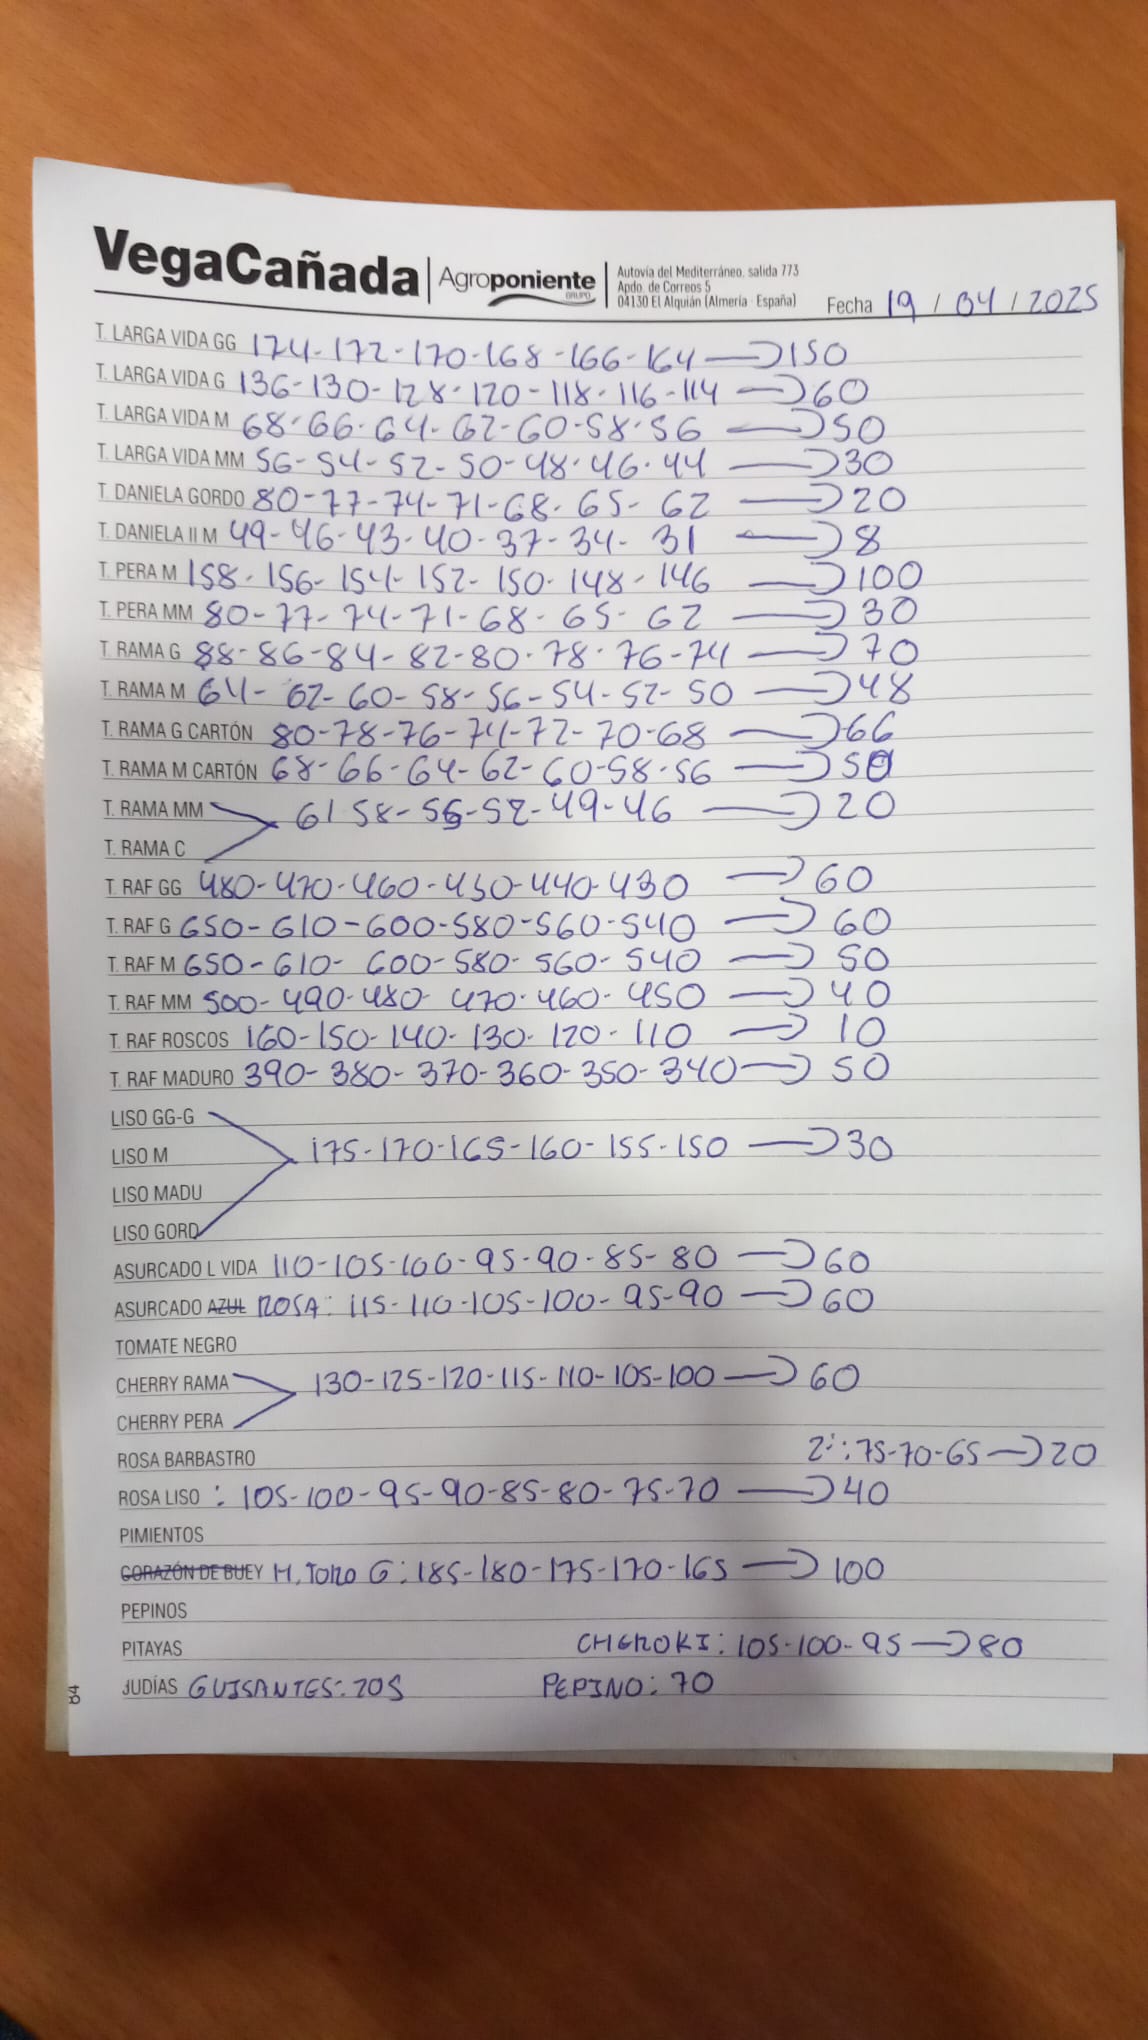 VegaCañada | Agroponiente GRUPO
Autovía del Mediterráneo, salida 773
Apdo. de Correos 5
04130 El Alquián (Almería - España)
Fecha 19 / 04 / 2025
T. LARGA VIDA GG 174-172-170-168-166-164 → 150
T. LARGA VIDA G 136-130-128-120-118-116-114 → 60
T. LARGA VIDA M 68-66-64-62-60-58-56 → 50
T. LARGA VIDA MM 56-54-52-50-48-46-44 → 30
T. DANIELA GORDO 80-77-74-71-68-65-62 → 20
T. DANIELA II M 49-46-43-40-37-34-31 → 8
T. PERA M 158-156-154-152-150-148-146 → 100
T. PERA MM 80-77-74-71-68-65-62 → 30
T. RAMA G 88-86-84-82-80-78-76-74 → 70
T. RAMA M 64-62-60-58-56-54-52-50 → 48
T. RAMA G CARTÓN 80-78-76-74-72-70-68 → 66
T. RAMA M CARTÓN 68-66-64-62-60-58-56 → 50
T. RAMA MM 61 58-55-52-49-46 → 20
T. RAMA C
T. RAF GG 480-470-460-450-440-430 → 60
T. RAF G 650-610-600-580-560-540 → 60
T. RAF M 650-610-600-580-560-540 → 50
T. RAF MM 500-490-480-470-460-450 → 40
T. RAF ROSCOS 160-150-140-130-120-110 → 10
T. RAF MADURO 390-380-370-360-350-340 → 50
LISO GG-G
LISO M 175-170-165-160-155-150 → 30
LISO MADU
LISO GORD
ASURCADO L VIDA 110-105-100-95-90-85-80 → 60
ASURCADO AZUL ROSA: 115-110-105-100-95-90 → 60
TOMATE NEGRO
CHERRY RAMA 130-125-120-115-110-105-100 → 60
CHERRY PERA
ROSA BARBASTRO 2ª: 75-70-65 → 20
ROSA LISO : 105-100-95-90-85-80-75-70 → 40
PIMIENTOS
CORAZÓN DE BUEY M. TORO G: 185-180-175-170-165 → 100
PEPINOS
PITAYAS CHEROKI: 105-100-95 → 80
JUDÍAS GUISANTES: 205 PEPINO: 70
64